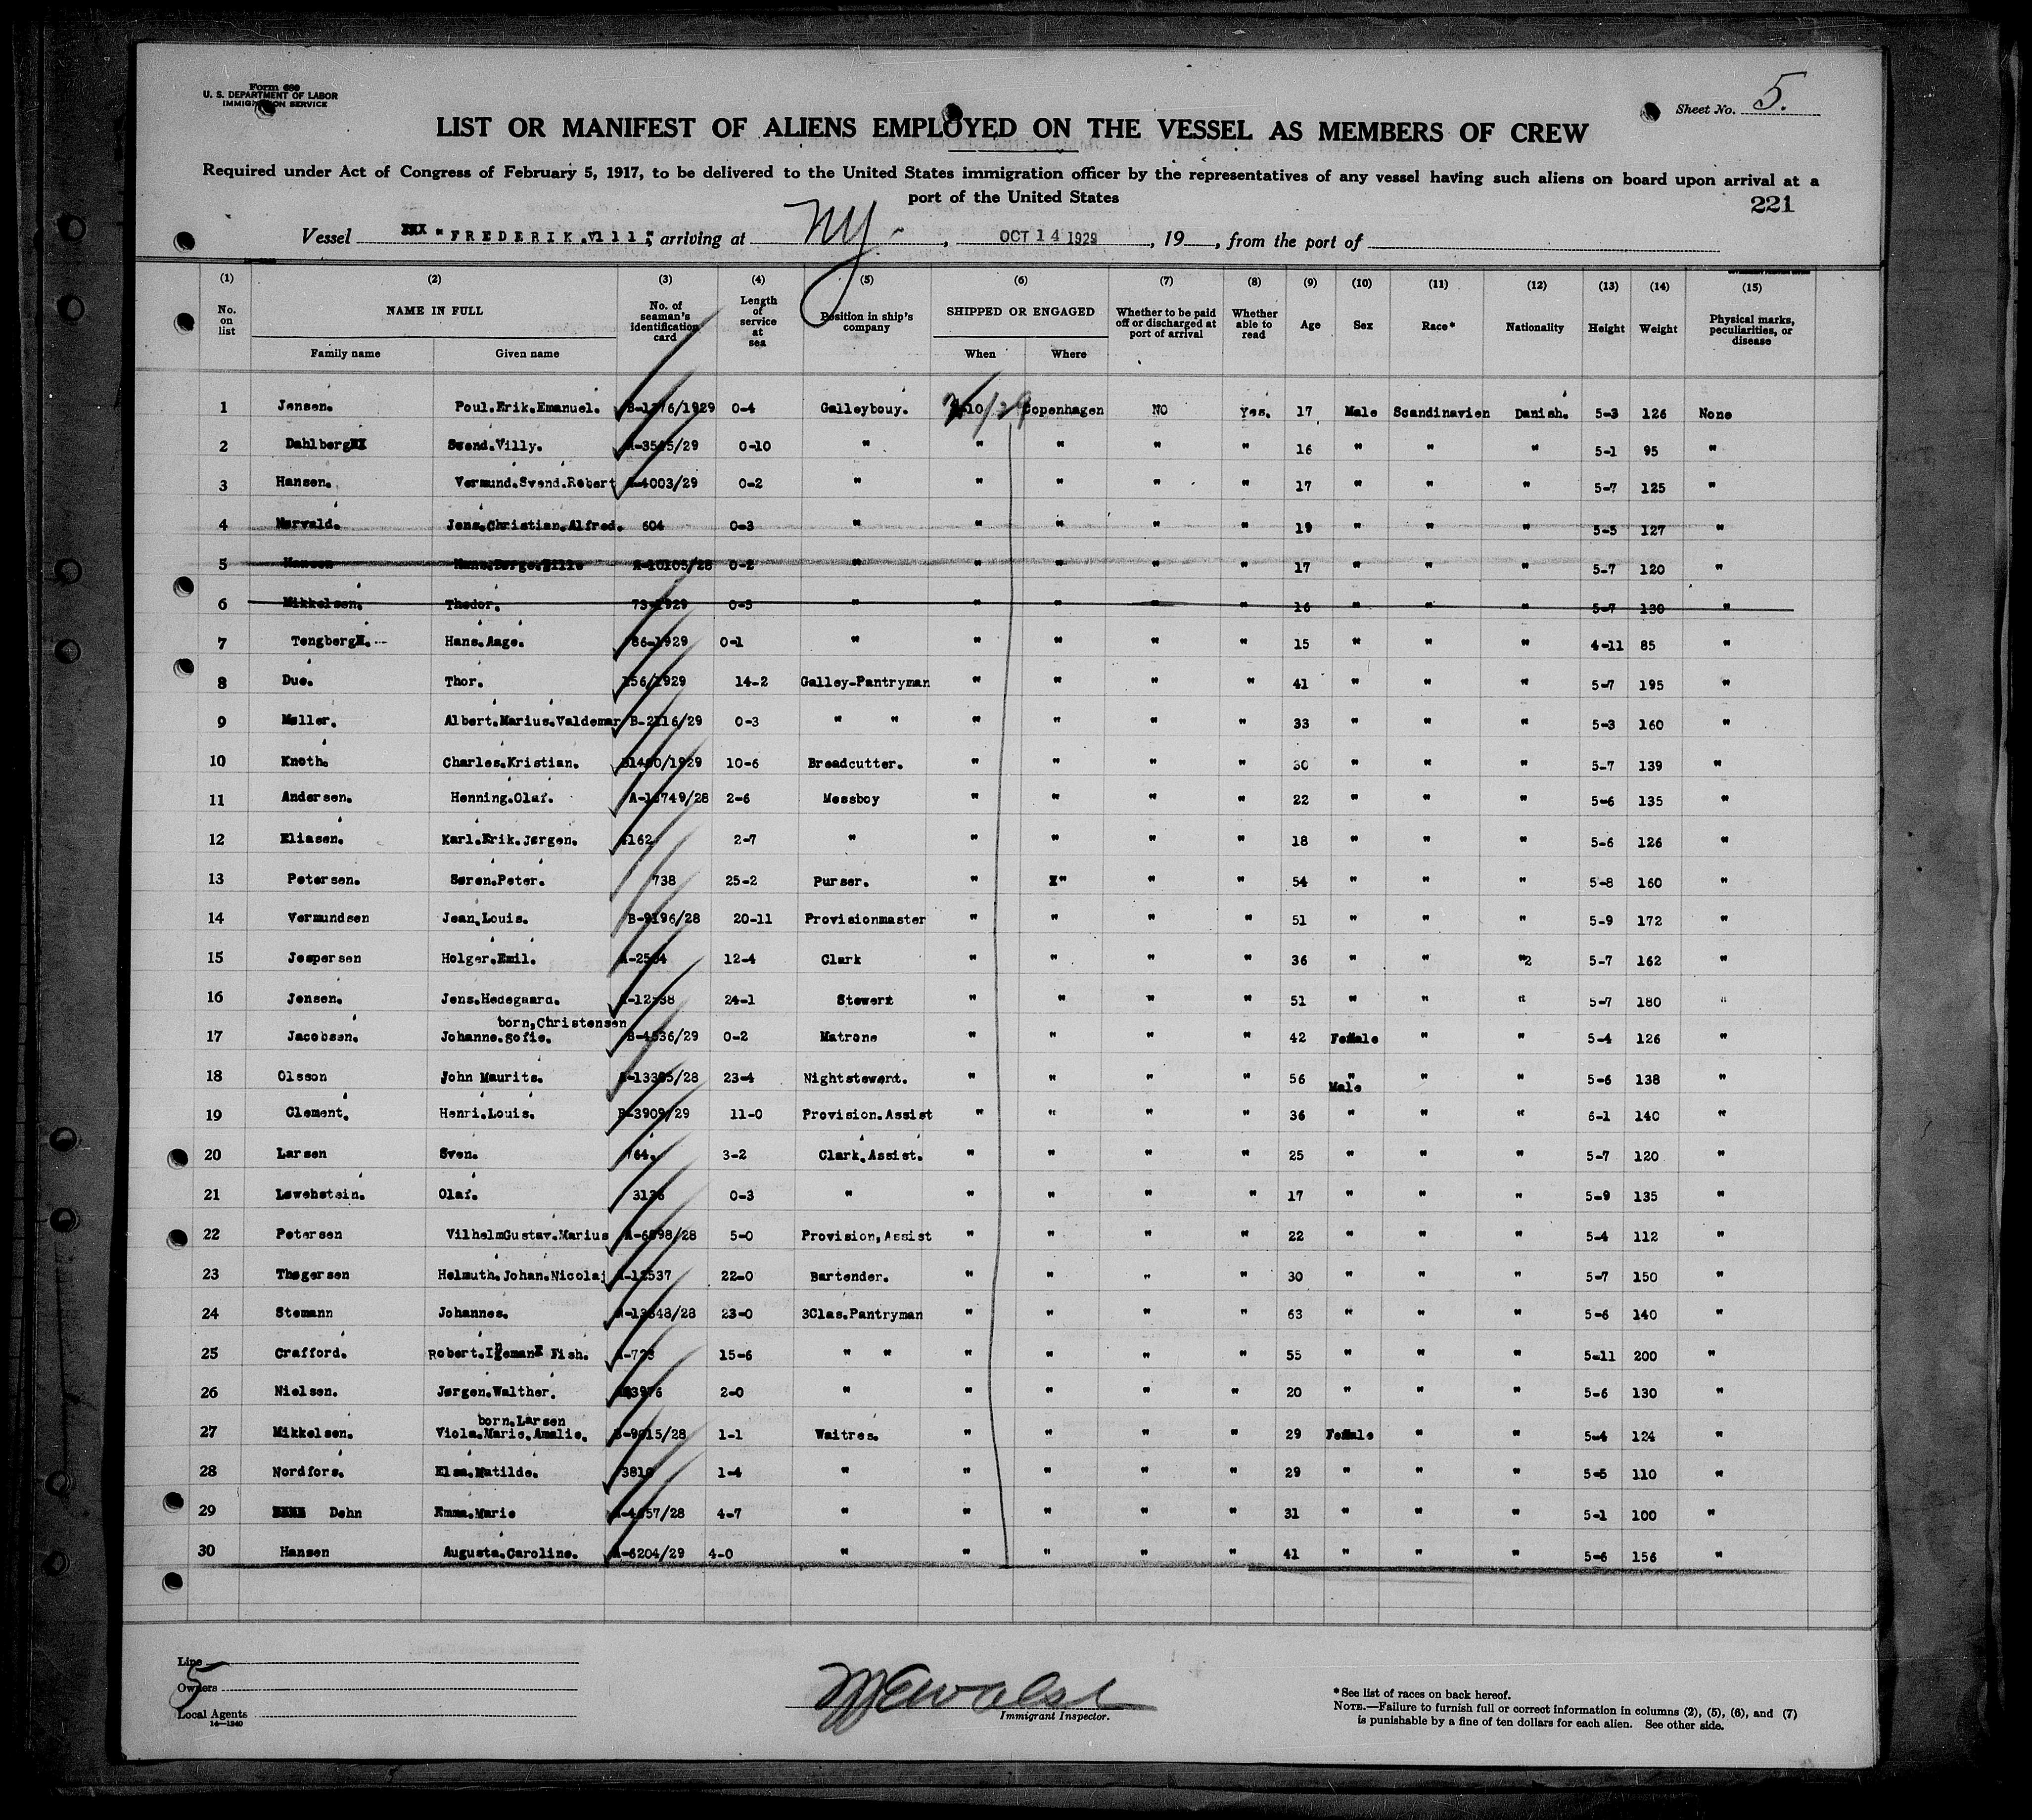 Form 680
U. S. DEPARTMENT OF LABOR
IMMIGRATION SERVICE
Sheet No. 5.
LIST OR MANIFEST OF ALIENS EMPLOYED ON THE VESSEL AS MEMBERS OF CREW
Required under Act of Congress of February 5, 1917, to be delivered to the United States immigration officer by the representatives of any vessel having such aliens on board upon arrival at a
port of the United States
221
Vessel "FREDERIK.V111", arriving at NY. , OCT 14 1929 , 19 , from the port of
(1) (2) (3) (4) (5) (6) (7) (8) (9) (10) (11) (12) (13) (14) (15)
No. on list NAME IN FULL Family name Given name No. of seaman's identification card Length of service at sea Position in ship's company SHIPPED OR ENGAGED When Where Whether to be paid off or discharged at port of arrival Whether able to read Age Sex Race* Nationality Height Weight Physical marks, peculiarities, or disease
1 Jensen. Poul.Erik.Emanuel. 0-4 Galleybouy. Copenhagen NO Yes. 17 Male Scandinavien Danish. 5-3 126 None
2 Dahlberg Svend.Villy. 0-10 " " " " " 16 " " " 5-1 95 "
3 Hansen. Vermund.Svend.Robert A-4003/29 0-2 " " " " " 17 " " " 5-7 125 "
4 Nørvald. Jens.Christian.Alfred. 604 0-3 " " " " " 19 " " " 5-5 127 "
5 Hansen A-10105/28 0-2 " " " " " 17 " " " 5-7 120 "
6 Mikkelsen. Thedor. 73-1929 0-5 " " " " " 16 " " " 5-7 130 "
7 Tengberg Hans.Aage. 86-1929 0-1 " " " " " 15 " " " 4-11 85 "
8 Due. Thor. 156/1929 14-2 Galley-Pantryman " " " " 41 " " " 5-7 195 "
9 Møller. Albert.Marius.Valdemar B-2116/29 0-3 " " " " " " 33 " " " 5-3 160 "
10 Knoth. Charles.Kristian. 10-6 Breadcutter. " " " " 30 " " " 5-7 139 "
11 Andersen. Henning.Olaf. 2-6 Messboy " " " " 22 " " " 5-6 135 "
12 Eliasen. Karl.Erik.Jørgen. 2-7 " " " " " 18 " " " 5-6 126 "
13 Petersen. Søren.Peter. 738 25-2 Purser. " X" " " 54 " " " 5-8 160 "
14 Vermundsen Jean.Louis. B-9196/28 20-11 Provisionmaster " " " " 51 " " " 5-9 172 "
15 Jespersen Holger.Emil. 12-4 Clark " " " " 36 " " "2 5-7 162 "
16 Jensen. Jens.Hedegaard. 24-1 Stewert " " " " 51 " " " 5-7 180 "
born,Christensen
17 Jacobsen. Johanne.Sofie. B-4536/29 0-2 Matrone " " " " 42 Female " " 5-4 126 "
18 Olsson John Maurits. 23-4 Nightstewerd. " " " " 56 " Male " " 5-6 138 "
19 Clement. Henri.Louis. B-3909/29 11-0 Provision.Assist " " " " 36 " " " 6-1 140 "
20 Larsen Sven. 764. 3-2 Clark.Assist. " " " " 25 " " " 5-7 120 "
21 Løwehstein. Olaf. 0-3 " " " " " 17 " " " 5-9 135 "
22 Petersen VilhelmGustav.Marius 5-0 Provision,Assist " " " " 22 " " " 5-4 112 "
23 Thøgersen Helmuth.Johan.Nicolaj 22-0 Bartender. " " " " 30 " " " 5-7 150 "
24 Stemann Johannes. 23-0 3Clas.Pantryman " " " " 63 " " " 5-6 140 "
25 Crafford. Robert.Ingeman Fish. 15-6 " " " " " " 55 " " " 5-11 200 "
26 Nielsen. Jørgen.Walther. 2-0 " " " " " 20 " " " 5-6 130 "
born.Larsen
27 Mikkelsen. Viola.Marie.Amalie. 1-1 Waitres. " " " " 29 Female " " 5-4 124 "
28 Nordfors. Elsa.Matilde. 1-4 " " " " " 29 " " " 5-5 110 "
29 Dehn Emma.Marie 4-7 " " " " " 31 " " " 5-1 100 "
30 Hansen Augusta.Caroline. A-6204/29 4-0 " " " " " 41 " " " 5-6 156 "
Line
Owners
5
Local Agents
14—1240
Immigrant Inspector.
*See list of races on back hereof.
NOTE.—Failure to furnish full or correct information in columns (2), (5), (6), and (7)
is punishable by a fine of ten dollars for each alien. See other side.